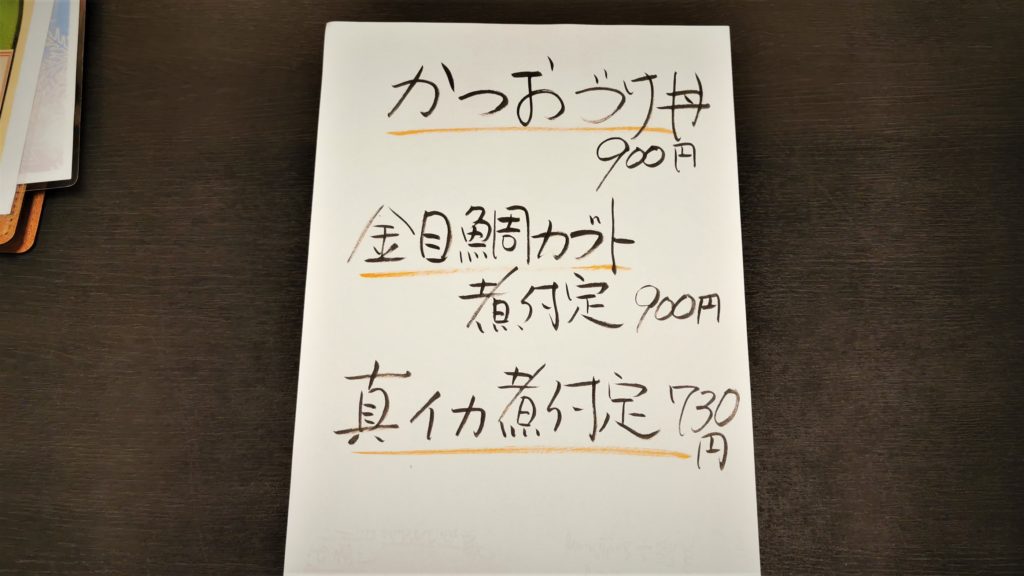 かつおづけ丼
900円
金目鯛カブト
煮付定 900円
真イカ煮付定 730
円